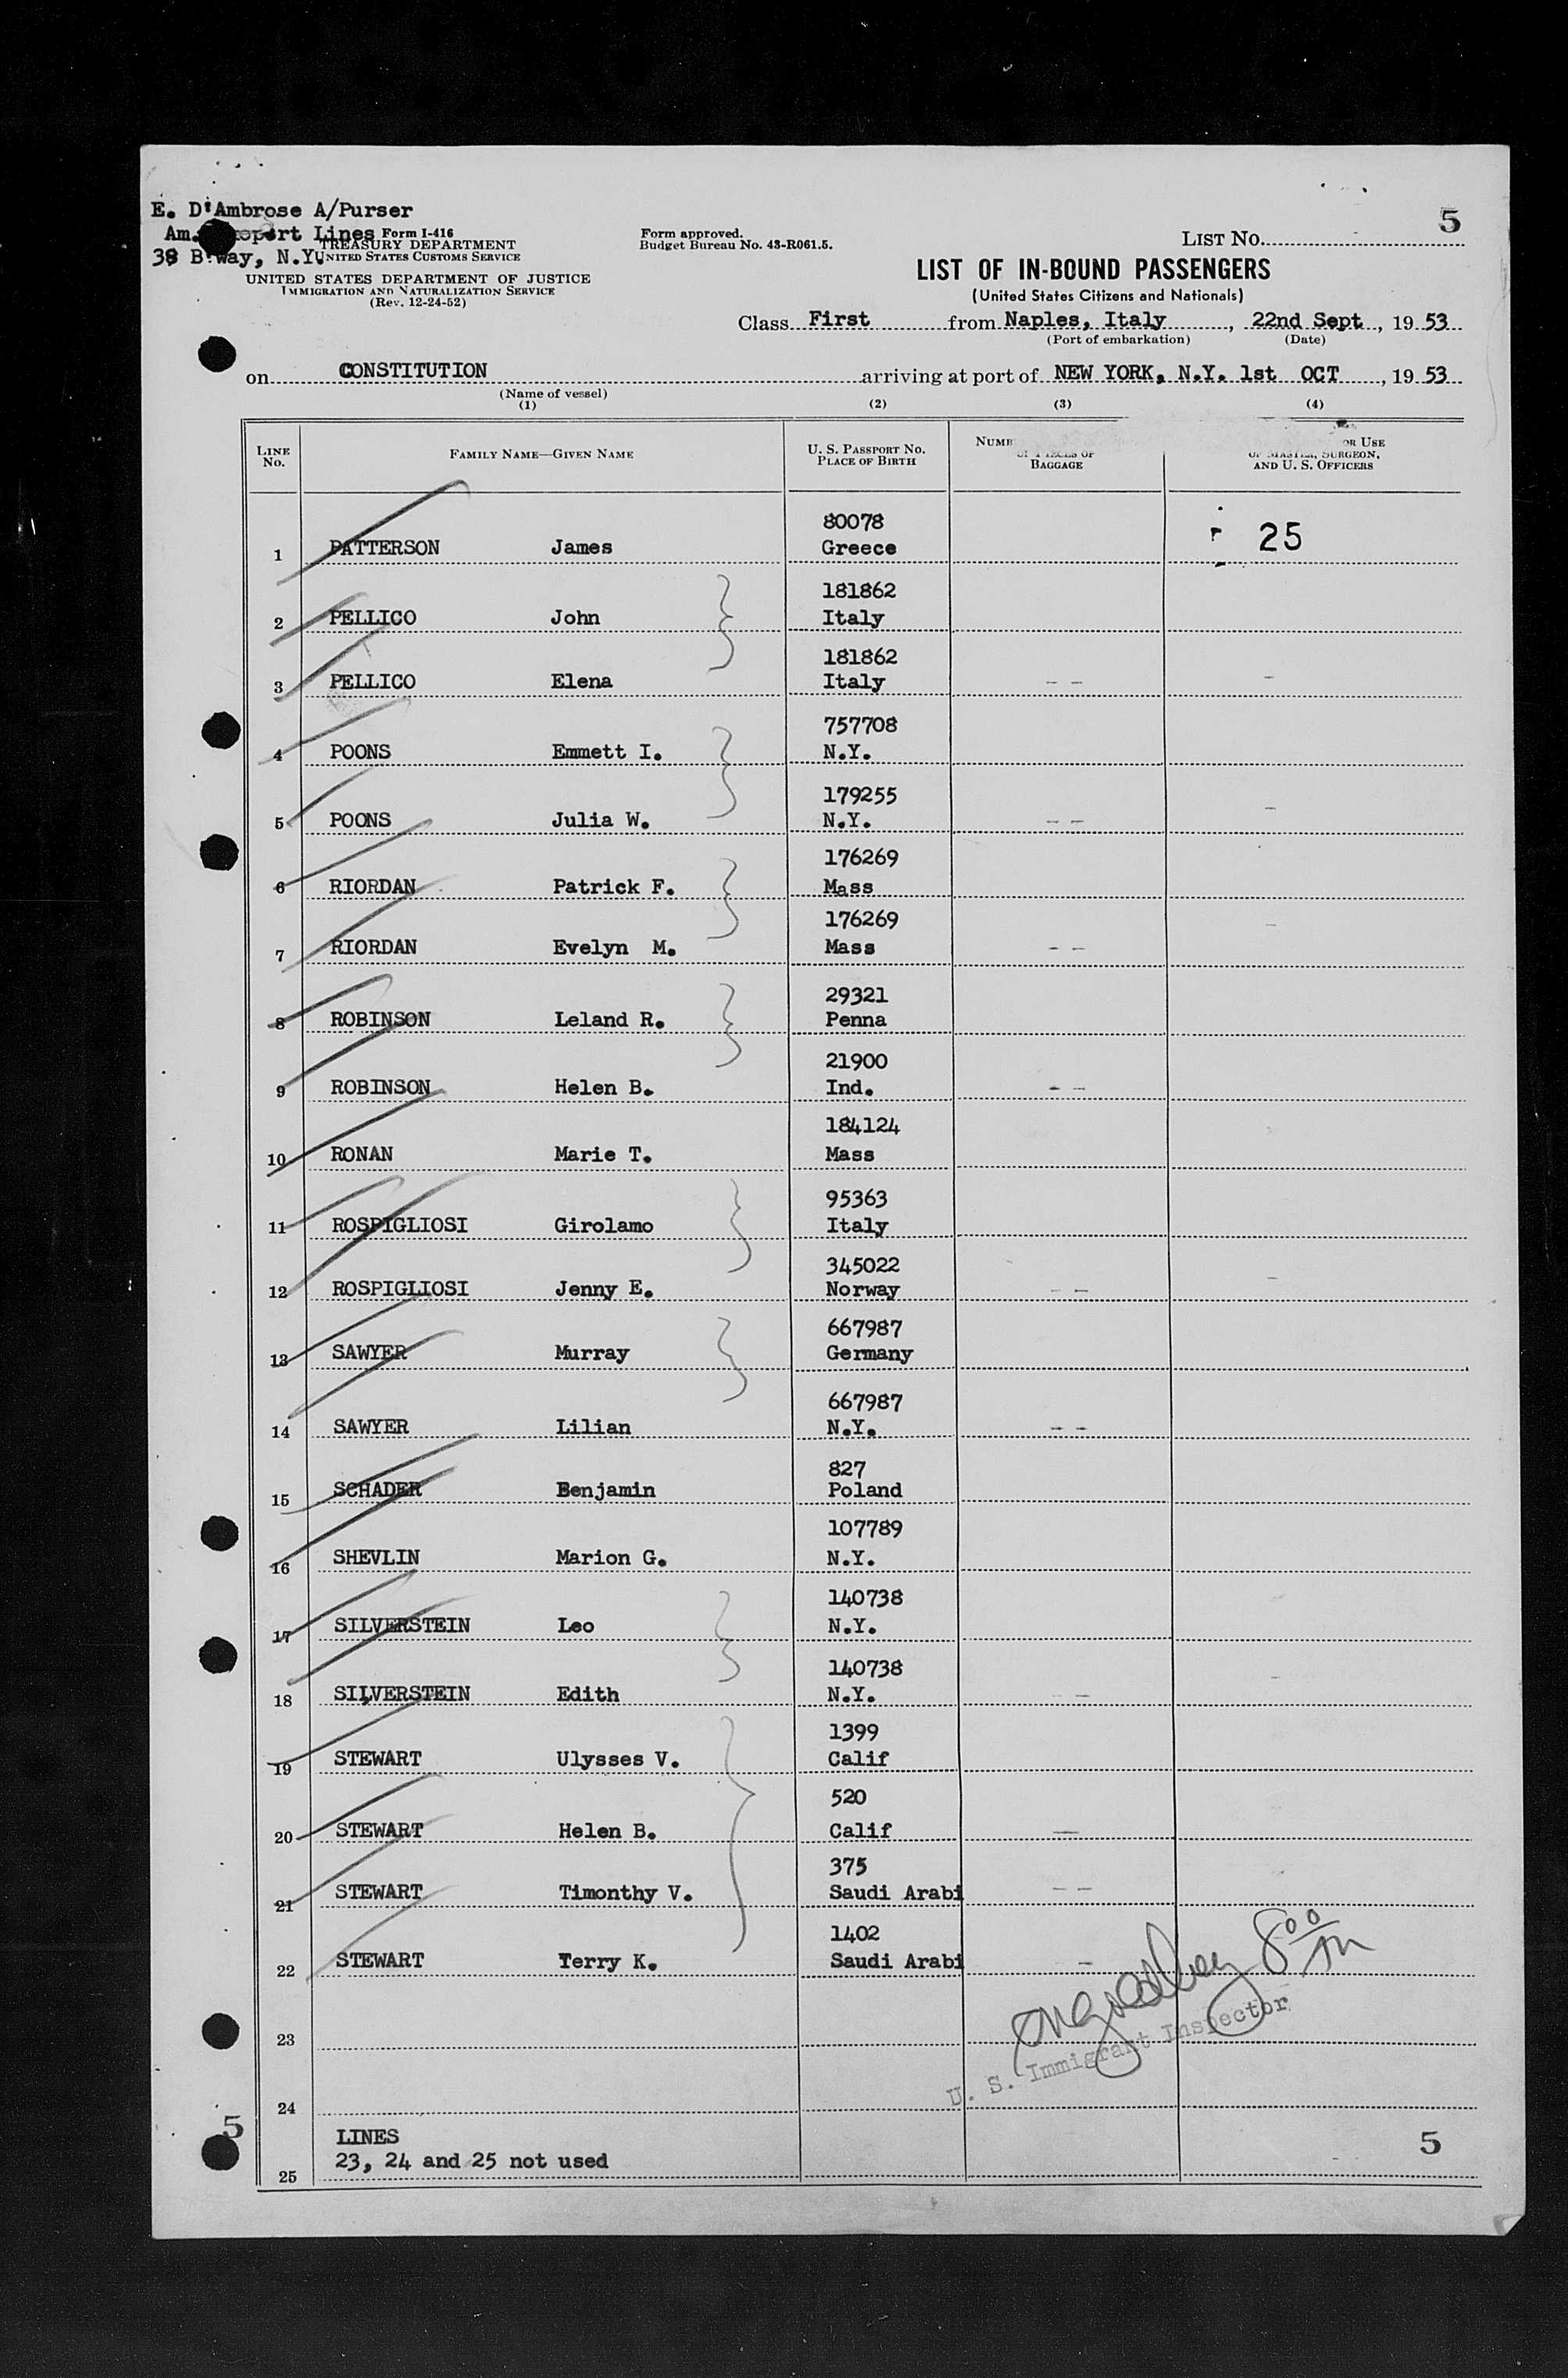 5
E. D'Ambrose A/Purser
Am. Lines Form I-416
TREASURY DEPARTMENT
39 B'way, N.Y. UNITED STATES CUSTOMS SERVICE
UNITED STATES DEPARTMENT OF JUSTICE
IMMIGRATION AND NATURALIZATION SERVICE
(Rev. 12-24-52)
Form approved.
Budget Bureau No. 43-R061.5.
LIST NO.
LIST OF IN-BOUND PASSENGERS
(United States Citizens and Nationals)
Class First from Naples, Italy, 22nd Sept, 19 53
(Port of embarkation) (Date)
on CONSTITUTION arriving at port of NEW YORK, N.Y. 1st OCT, 19 53
(Name of vessel)
(1) (2) (3) (4)
LINE NO. FAMILY NAME—GIVEN NAME U. S. PASSPORT NO. PLACE OF BIRTH BAGGAGE OR USE SURGEON, AND U. S. OFFICERS
80078
1 PATTERSON James Greece 25
181862
2 PELLICO John Italy
181862
3 PELLICO Elena Italy - - -
757708
4 POONS Emmett I. N.Y.
179255
5 POONS Julia W. N.Y. - - -
176269
6 RIORDAN Patrick F. Mass
176269
7 RIORDAN Evelyn M. Mass - - -
29321
8 ROBINSON Leland R. Penna
21900
9 ROBINSON Helen B. Ind. - -
184124
10 RONAN Marie T. Mass
95363
11 ROSPIGLIOSI Girolamo Italy
345022
12 ROSPIGLIOSI Jenny E. Norway - - -
667987
13 SAWYER Murray Germany
667987
14 SAWYER Lilian N.Y. - -
827
15 SCHADER Benjamin Poland
107789
16 SHEVLIN Marion G. N.Y.
140738
17 SILVERSTEIN Leo N.Y.
140738
18 SILVERSTEIN Edith N.Y. - -
1399
19 STEWART Ulysses V. Calif
520
20 STEWART Helen B. Calif -
375
21 STEWART Timonthy V. Saudi Arabi - -
1402
22 STEWART Terry K. Saudi Arabi -
8 00
23
U. S. Immigrant Inspector
24
5
LINES
23, 24 and 25 not used
5
25